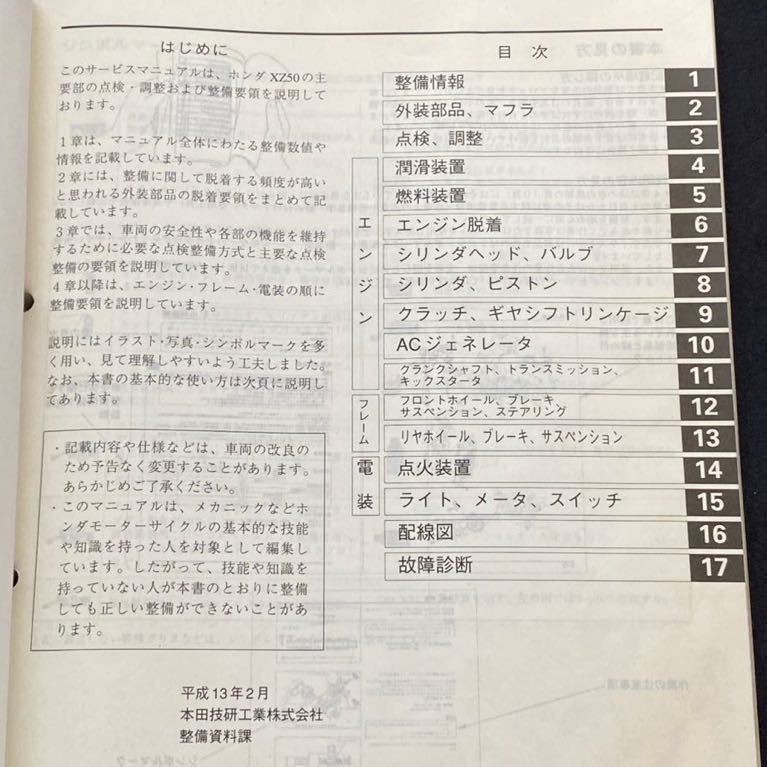 はじめに
このサービスマニュアルは、ホンダ XZ50の主
要部の点検・調整および整備要領を説明して
おります。
1章は、マニュアル全体にわたる整備数値や
情報を記載しています。
2章には、整備に関して脱着する頻度が高い
と思われる外装部品の脱着要領をまとめて記
載しています。
3章では、車両の安全性や各部の機能を維持
するために必要な点検整備方式と主要な点検
整備の要領を説明しています。
4章以降は、エンジン・フレーム・電装の順に
整備要領を説明しています。
説明にはイラスト・写真・シンボルマークを多
く用い、見て理解しやすいよう工夫しました。
なお、本書の基本的な使い方は次頁に説明し
てあります。
・記載内容や仕様などは、車両の改良の
ため予告なく変更することがあります。
あらかじめご了承ください。
・このマニュアルは、メカニックなどホ
ンダモーターサイクルの基本的な技能
や知識を持った人を対象として編集し
ています。したがって、技能や知識を
持っていない人が本書のとおりに整備
しても正しい整備ができないことがあ
ります。
平成13年2月
本田技研工業株式会社
整備資料課
目 次
整備情報 1
外装部品、マフラ 2
点検、調整 3
エンジン
潤滑装置 4
燃料装置 5
エンジン脱着 6
シリンダヘッド、バルブ 7
シリンダ、ピストン 8
クラッチ、ギヤシフトリンケージ 9
ACジェネレータ 10
クランクシャフト、トランスミッション、
キックスタータ 11
フレーム
フロントホイール、ブレーキ、
サスペンション、ステアリング 12
リヤホイール、ブレーキ、サスペンション 13
電装
点火装置 14
ライト、メータ、スイッチ 15
配線図 16
故障診断 17
本書の見方
作業の注意事項
シンボルマーク